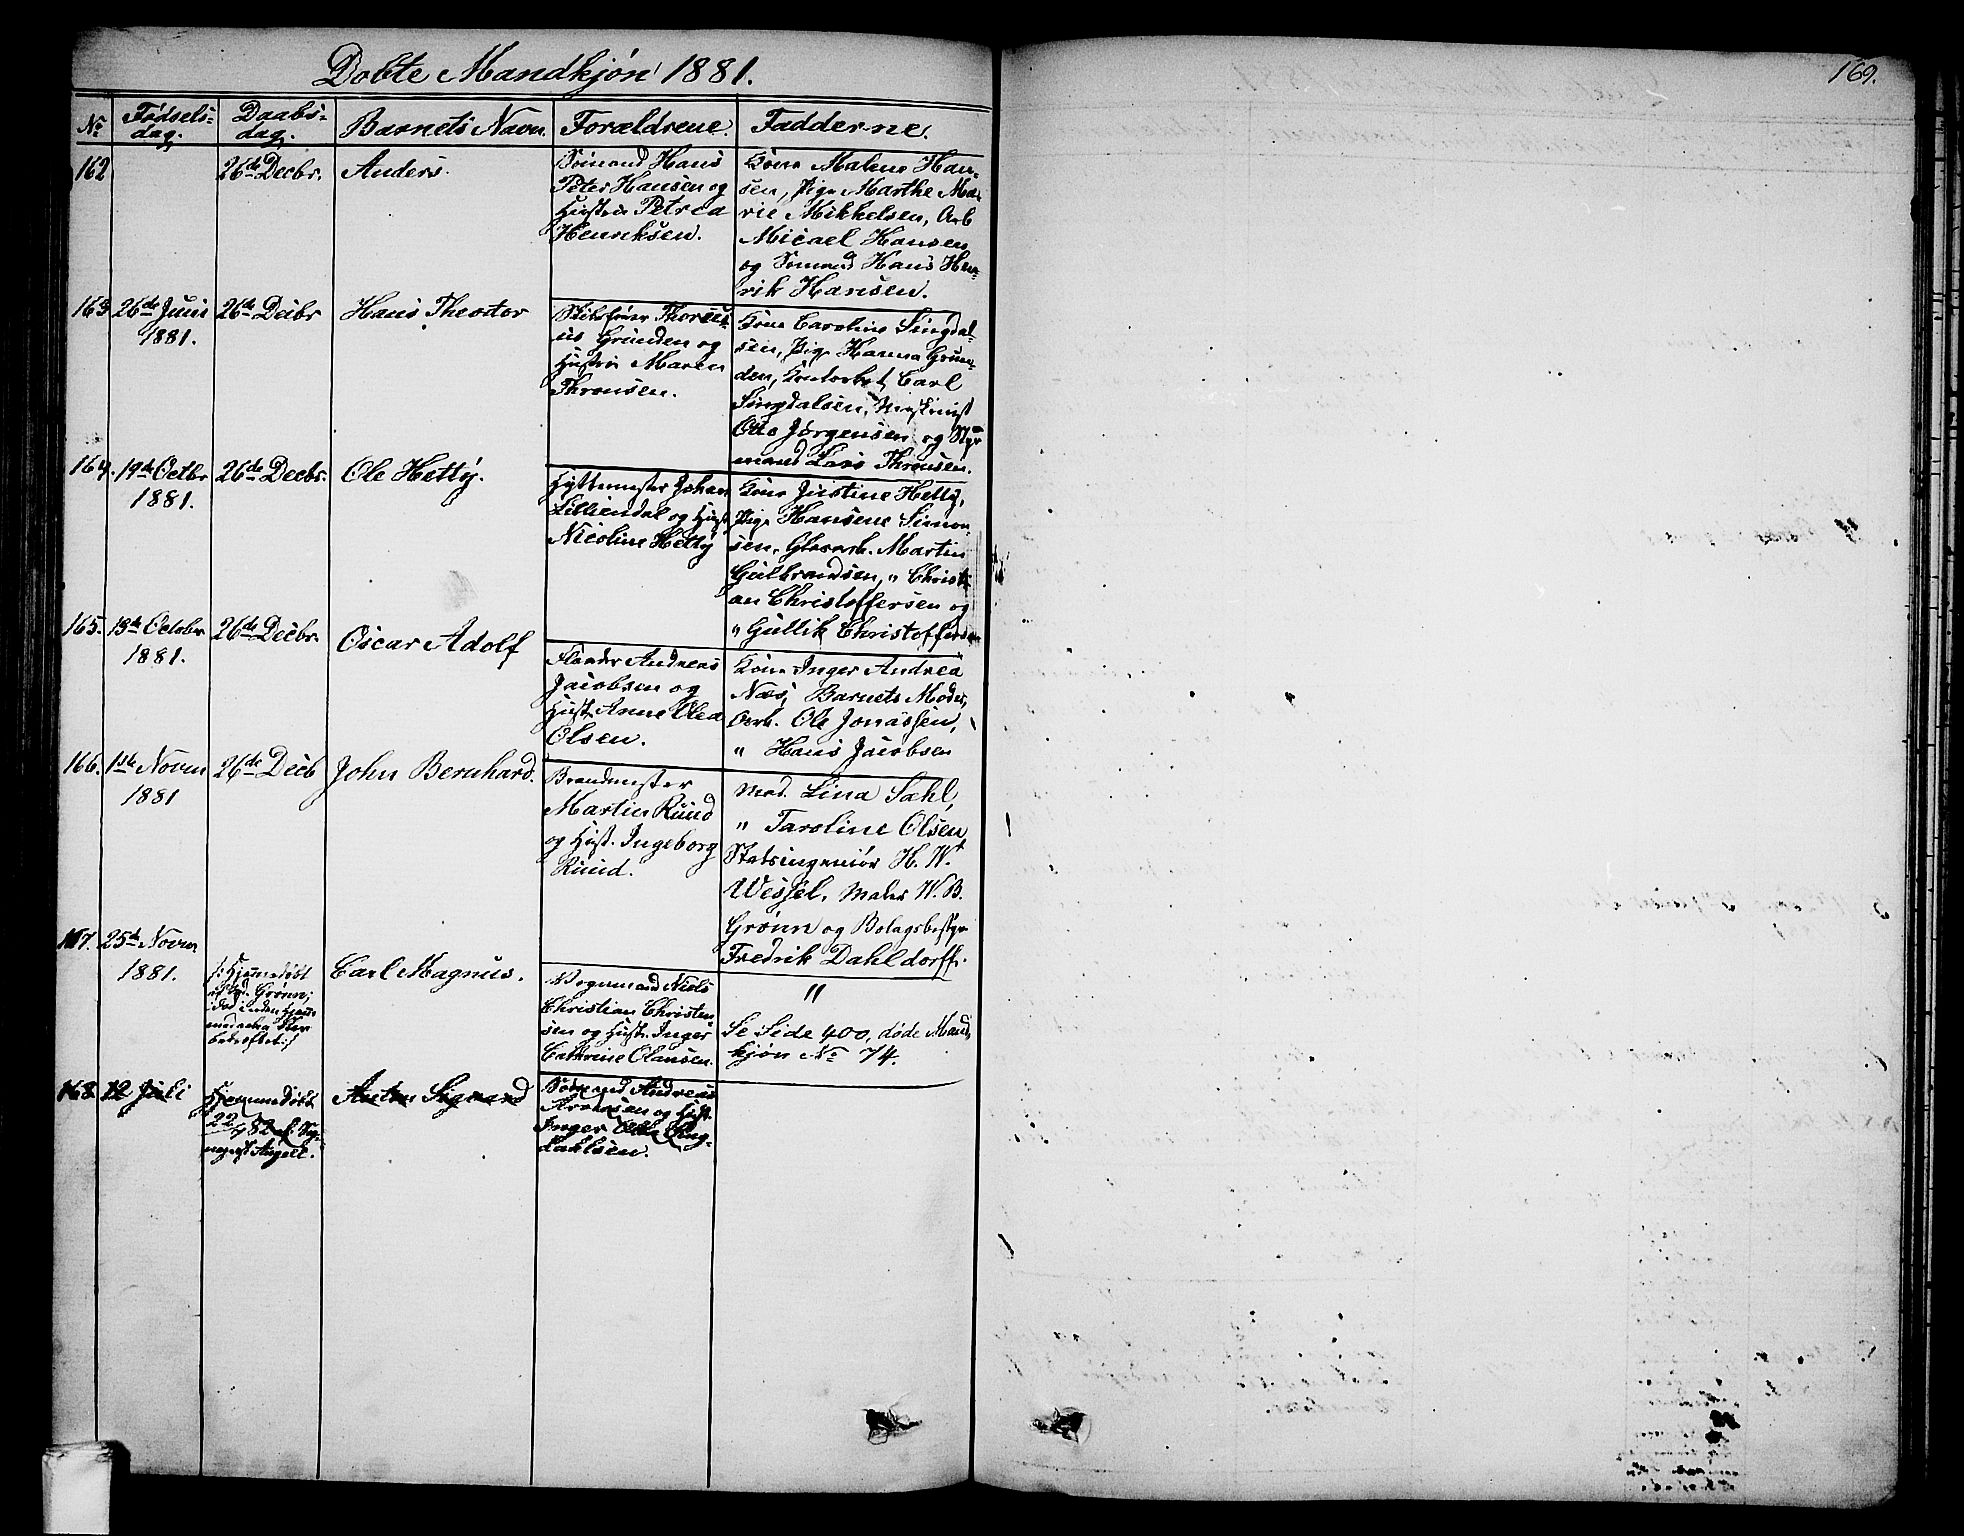 Døbte Mandkjøn 1881.
169.
No
Fødsels-
dag.
Daabs-
dag.
Barnets Navn
Forældrene.
Fadderne.
162
26de Decbr.
Anders.
Sømand Hans
Peter Hansen og
Hustru Petrea
Henriksen.
Kone Malene Han-
sen, Pige Marthe Ma-
rie Mikkelsen, Arb
Micael Hansen
og Sømand Hans Hen-
rik Hansen.
163
26de Juni
1881.
26de Decbr
Hans Theodor
Skibsfører
Grunden og
Hustru Maren
Thronsen.
Kone Caroline Singdal-
sen, Pige Hanna Grun-
den, Carl
Singdalsen, Maskinist
Otto Jørgensen og Styr-
mand Lars Thronsen.
164.
19de Octbr
1881.
26de Decbr.
Ole Hetty.
Hyttemester Johan
Lilliendal og Hust.
Nicoline Hetty
Kone Justine Hetty,
Pige Hansene Simon-
sen, Glasarb. Martin
Gulbrandsen, " Christi-
an Christoffersen og
" Gullik Christoffersen
165.
13de October
1881.
26de Decbr.
Oscar Adolf
Andreas
Jacobsen og
Hust. Anne Olea
Olsen.
Kone Inger Andrea
Næs, Barnets Moder,
Ole Jonassen,
" Hans Jacobsen
166.
1ste Novm
1881
26de Decb
John Bernhard.
Brandmester
Martin Ruud
og Hust. Ingeborg
Ruud.
Mad. Lina Sahl,
" Taroline Olsen
Statsingeniør H. W.
Wessel, Maler W. B.
Grønn og Bolagsbestyr
Fredrik Dahldorff.
167.
25de Novm
1881.
/: Hjemmedøbt
af Grønn;
Carl Magnus.
Vognmand Niels
Christian Christen-
sen og Hust. Inger
Cathrine Olausen.
"
Se Side 400, døde Mand-
kjøn No 74.
168
12 Juli
Hjemmedøbt
Anton Sigvard
Sømand Andreas
og Hust.
Inger Sing-
dahlsen.